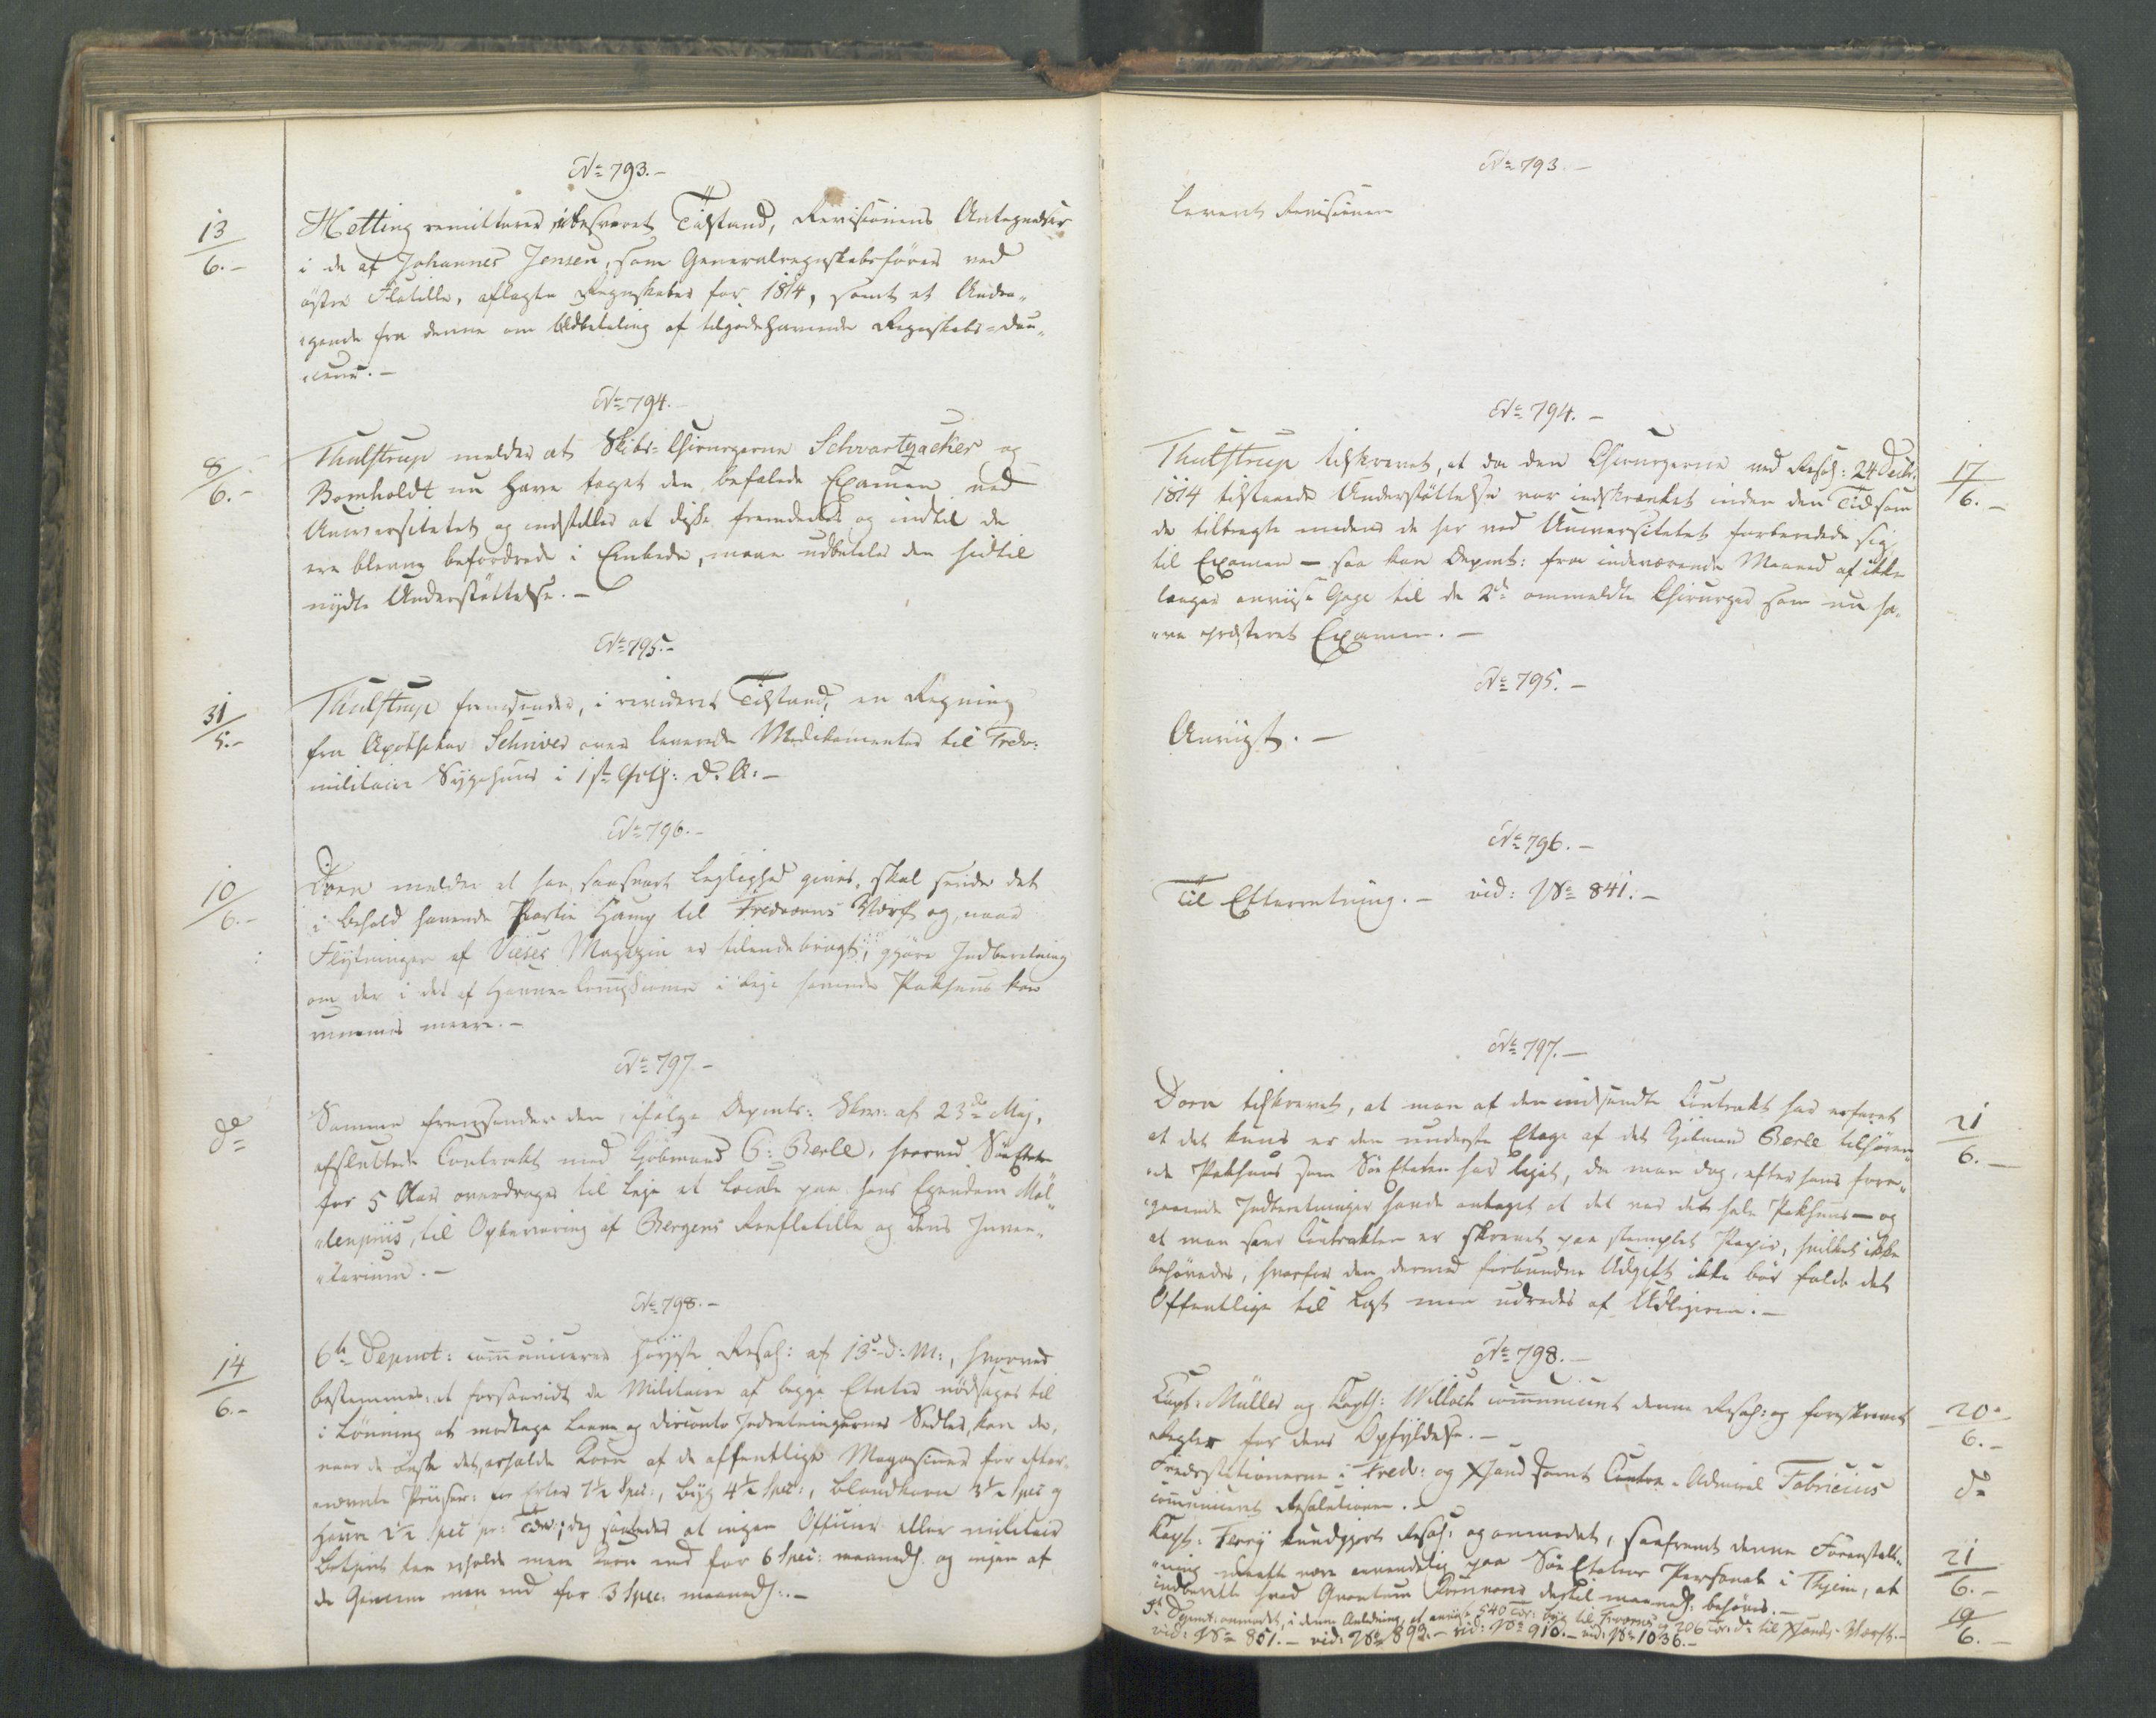 No 793.-
13/6.-
Hetting remitterer, i besvaret Tilstand, Revisionens Antegnelser
i de af Johannes Jensen, som Generalregnskabsförer ved
östre Flotille, aflagte Regnskaber for 1814, samt et Andra-
gende fra denne om Udbetaling af tilgodehavende Regnskabs-Dou-
ceur.-
No 794.-
8/6.-
Thulstrup melder at Skibs-Chirurgerne Schvartzacker og
Bomholdt nu have taget den befalede Examen ved
Universitetet og indstiller at disse fremdeles og indtil de
ere blevne befordrede i Embede, maae udbetales den hidtil
nydte Understöttelse.-
No 795.-
31/5.-
Thulstrup fremsender, i revideret Tilstand, en Regning
fra Apotheker Schiver over leverede Medikamenter til
militaire Sygehuus i 1ste d. A:-
No 796.-
10/6.-
Dorn melder at han, saasnart Leylighed gives, skal sende det
i Behold havende Partie Hamp til Fredværns Værft og, naar
Flytningen af Vieses Magazin er tilendebragt, gjöre Indberetning
om der i det af Havne-Commissionen i Leje havende Pakhuus kan
rummes meere.-
No 797.-
do
Samme fremsender den, ifölge Depmts: Skr: af 23de Maj,
afsluttede Contrakt med Kjöbmand C: Berle, hvorved SöeEtaten
for 5 Aar overdrages til Leje et Locale paa hans Ejendom Möl-
lenpriis, til Opbevaring af Bergens Roeflotille og dens Inven-
tarium.-
No 798.-
14/6.-
6te Depmt: communicerer höjeste Resol: af 13de d: M:, hvorved
bestemmes: at forsaavidt de Militaire af begge Etater nödsages til
i Lönning at modtage Laane og Disconto Indretningernes Sedler, kan de,
naar de önske det, erholde Korn af de offentlige Magasiner for efter-
nævnte Priiser: Erter 7½ Spec:, Byg 4½ Spec:, Blandkorn 3½ Spec: og
Havre 2½ Spec: pr: Tde; dog saaledes at ingen Officier eller militair
Betjent kan erholde mere Korn end for 6 Spec: maanedl. og ingen af
de Gemene mere end for 3 Spec: maanedl:.-
No 793.-
Leveret Revisionen
No 794.-
17/6.-
Thulstrup tilskrevet, at da den Chirurgerne ved Resol: 24 Decbr.
1814 tilstaaede Understöttelse var indskrænket inden den Tid som
de tilbragte medens de her ved Universitetet forberedede sig
til Examen — saa kan Depmt: fra indeværende Maaned af ikke
længer anviise Gage til de 2de ommeldte Chirurger som nu ha-
ve præsteret Examen.-
No 795.-
Anviist.-
No 796.-
Til Efterretning.- vid: No 841.-
No 797.-
21/6.-
Dorn tilskrevet, at man af den indsendte Contrakt har erfaret
at det kuns er den underste Etage af det Kjöbmand Berle tilhören-
de Pakhuus som SöeEtaten har lejet, da man dog, efter hans fore-
gaaende Indberetninger havde antaget at det var det hele Pakhuus — og
at man seer Contrakten er skrevet paa stemplet Papir, hvilket ikke
behövedes, hvorfor den dermed forbundne Udgift ikke bör falde det
Offentlige til Last men udredes af Udlejeren.-
No 798.-
20/6.-
Capt: Müller og Captl: Willoch communiceret denne Resol: og foreskrevet
Regler for dens Opfyldelse.-
do
i Fred: og Xsand samt Contra-Admiral Fabricius
communiceret Resolutionen.-
21/6.-
Capt: Ferry kundgjort Resol: og anmodet, saafremt denne Foranstalt-
ning maatte være anvendelig paa SöeEtatens Personale i Thjem, at
indberette hvad Qvantum Kornvarer dertil maanedl: behöves.-
19/6.-
5te Depmt: anmodet, i denne Anledning, at anviise 540 Tdr: Byg til Frværns og 206 Tdr: do til Xsands Værft.-
vid: No 851.- vid: No 892.- vid: No 910.- vid: No 1036.-